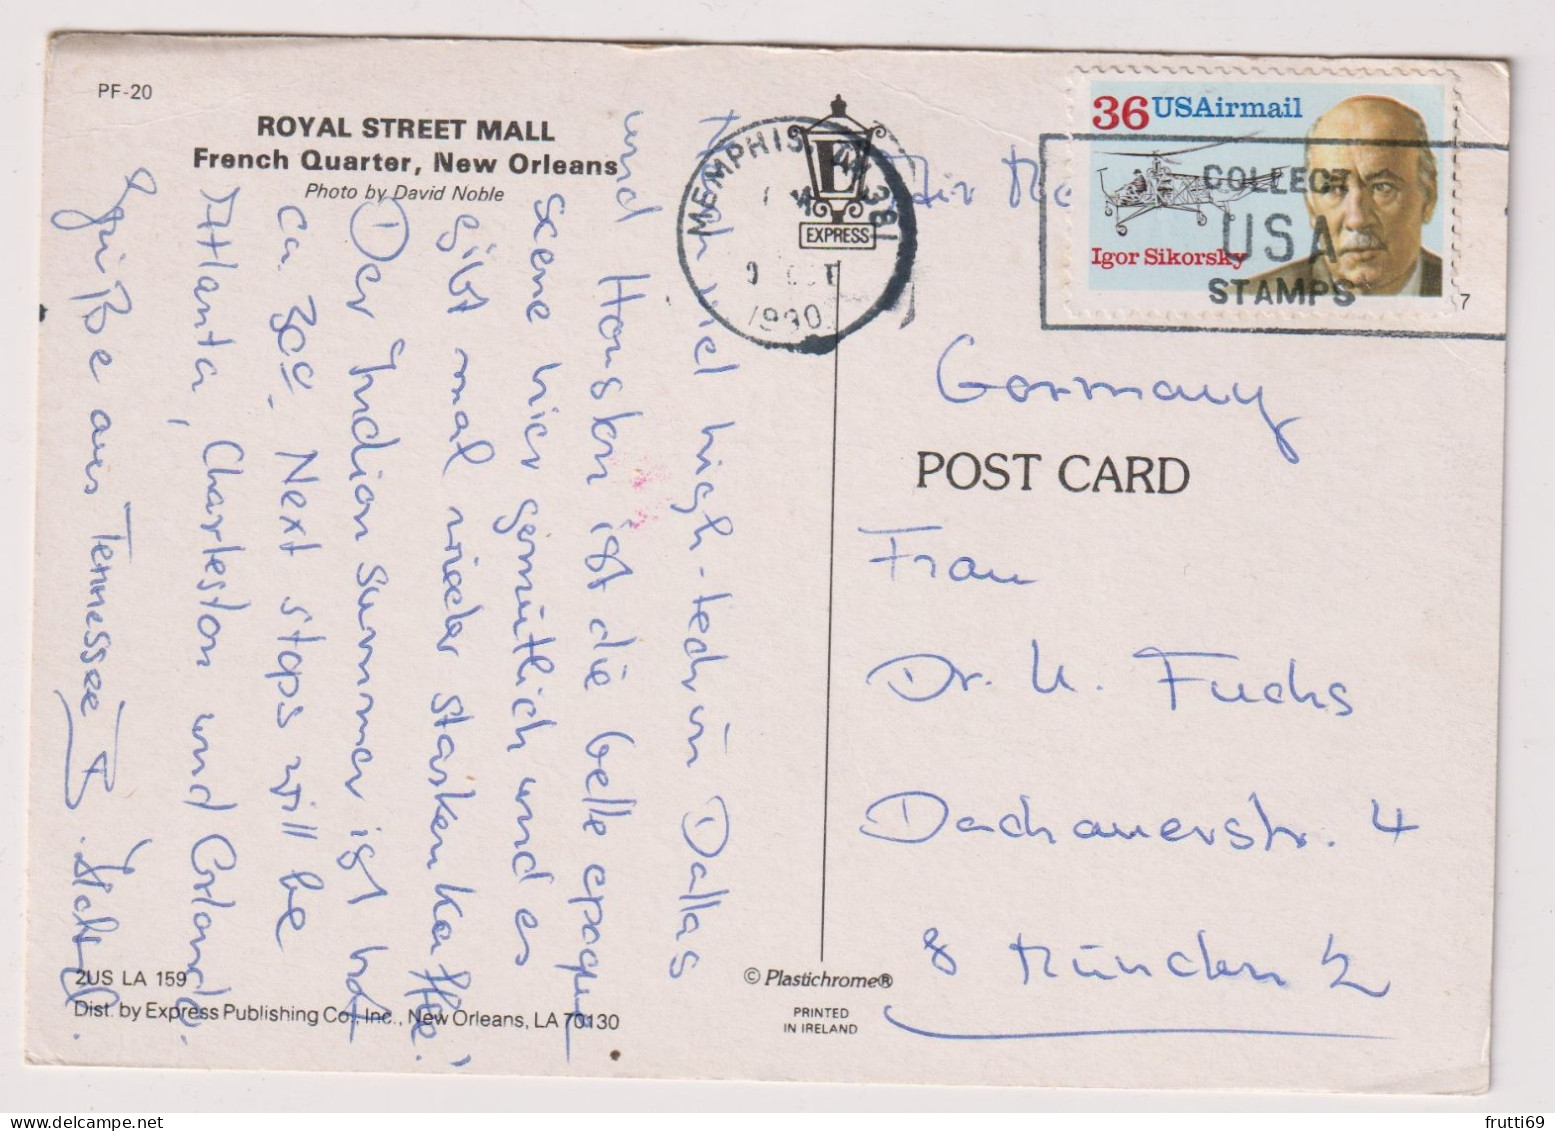 PF-20
ROYAL STREET MALL
French Quarter, New Orleans
Photo by David Noble
Nach viel high-tech in Dallas
und Houston ist die belle epoque
scene hier gemütlich und es
gibt mal wieder starken Kaffee!
Der Indian Summer ist hot
ca. 30°. Next stops will be
Atlanta, Charleston und Orlando.
Grüße aus Tennessee
2US LA 159
Dist. by Express Publishing Co., Inc., New Orleans, LA 70130
MEMPHIS, 381
OCT
1990
E
EXPRESS
© Plastichrome®
PRINTED
IN IRELAND
Air
36 USAirmail
Igor Sikorsky
COLLECT
USA
STAMPS
7
Germany
POST CARD
Frau
Dr. U. Fuchs
Dachauerstr. 4
8 München 2
frutti69